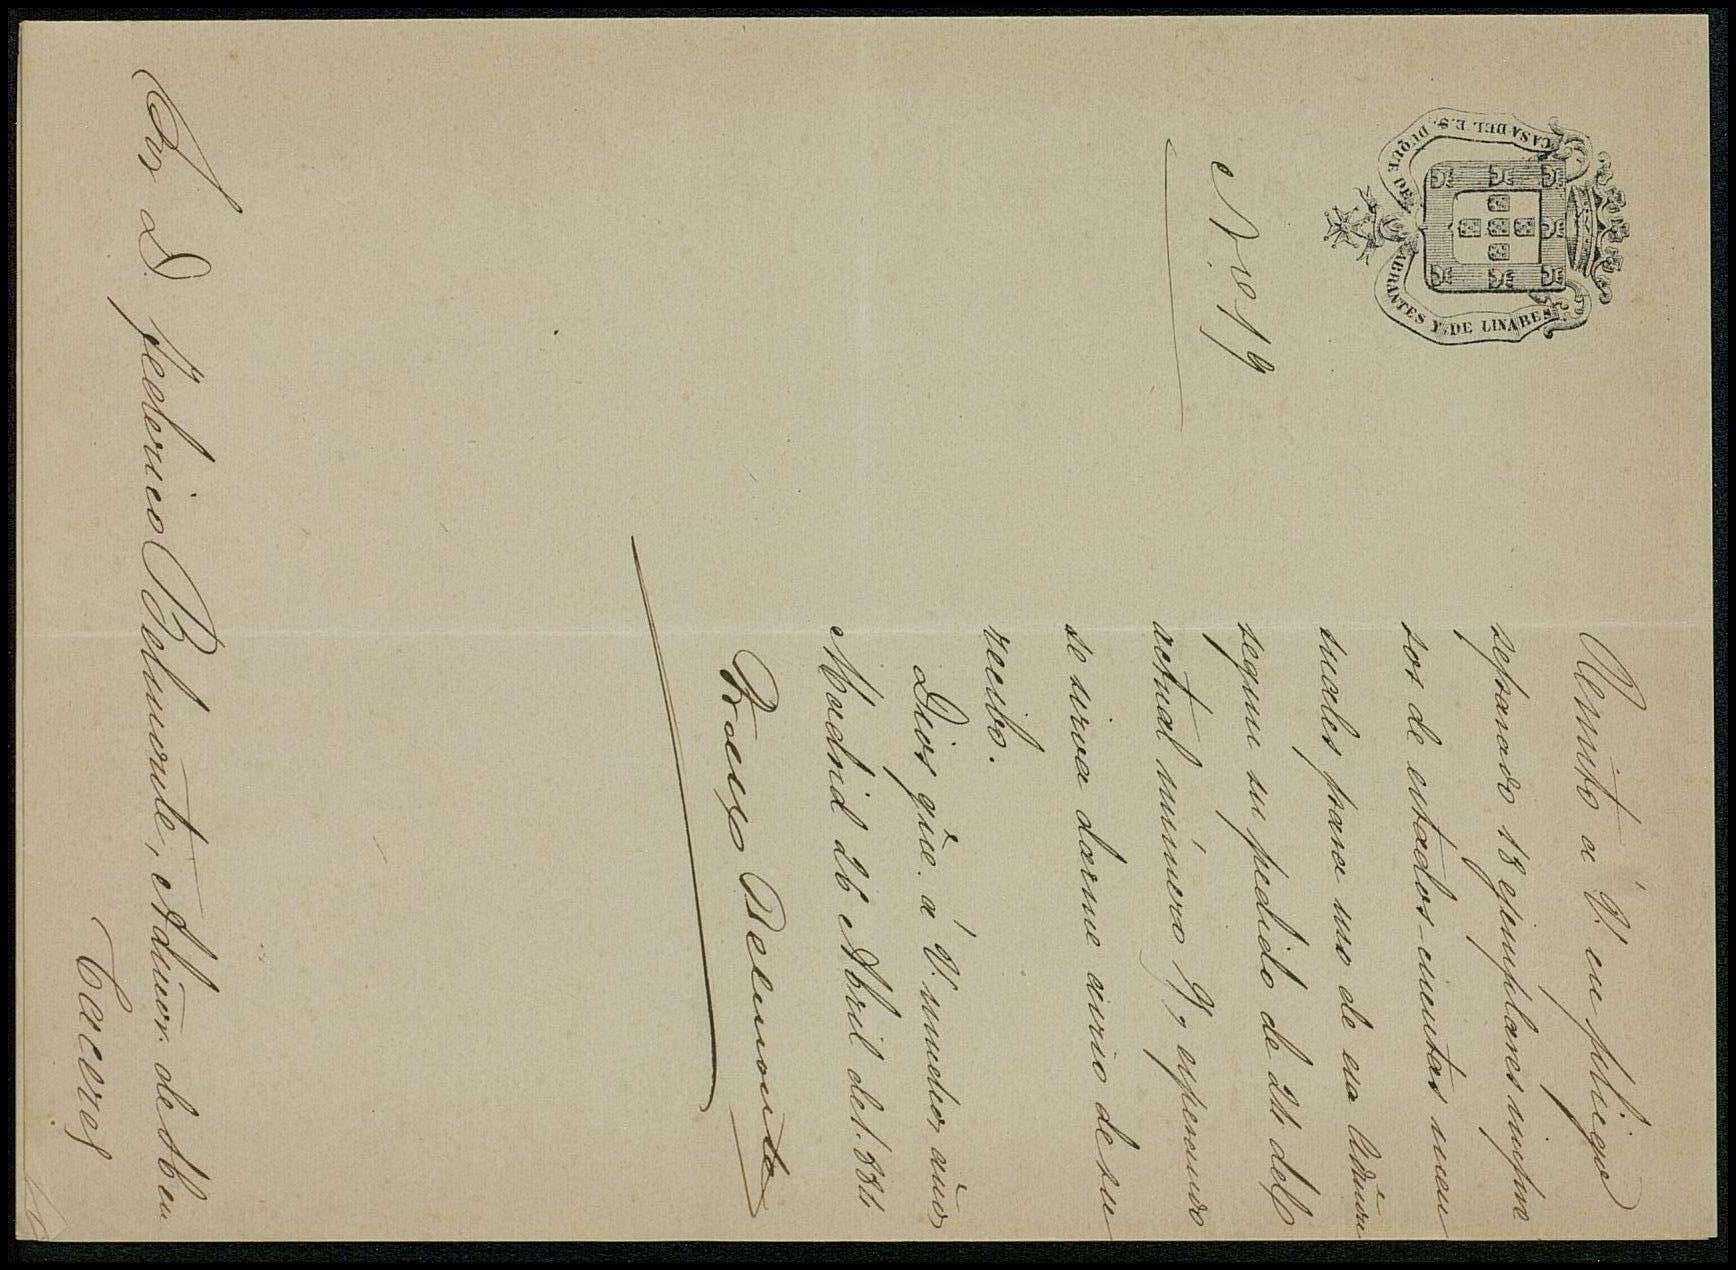 CASA DEL E.S. DUQUE DE ABRANTES Y DE LINARES
N.º 19
Remito á V. en pliego
separado 18 ejemplares impre
sos de estados-cuentas men
suales para uso de esa Admón
segun su pedido de 24 del
actual número 9, esperando
se sirva darme aviso de su
recibo.
Dios gũe. á V. muchos años
Madrid 26 Abril de 1.884
Belmonte
Sor. D. Federico Belmonte, Admor. de Aben
Caceres